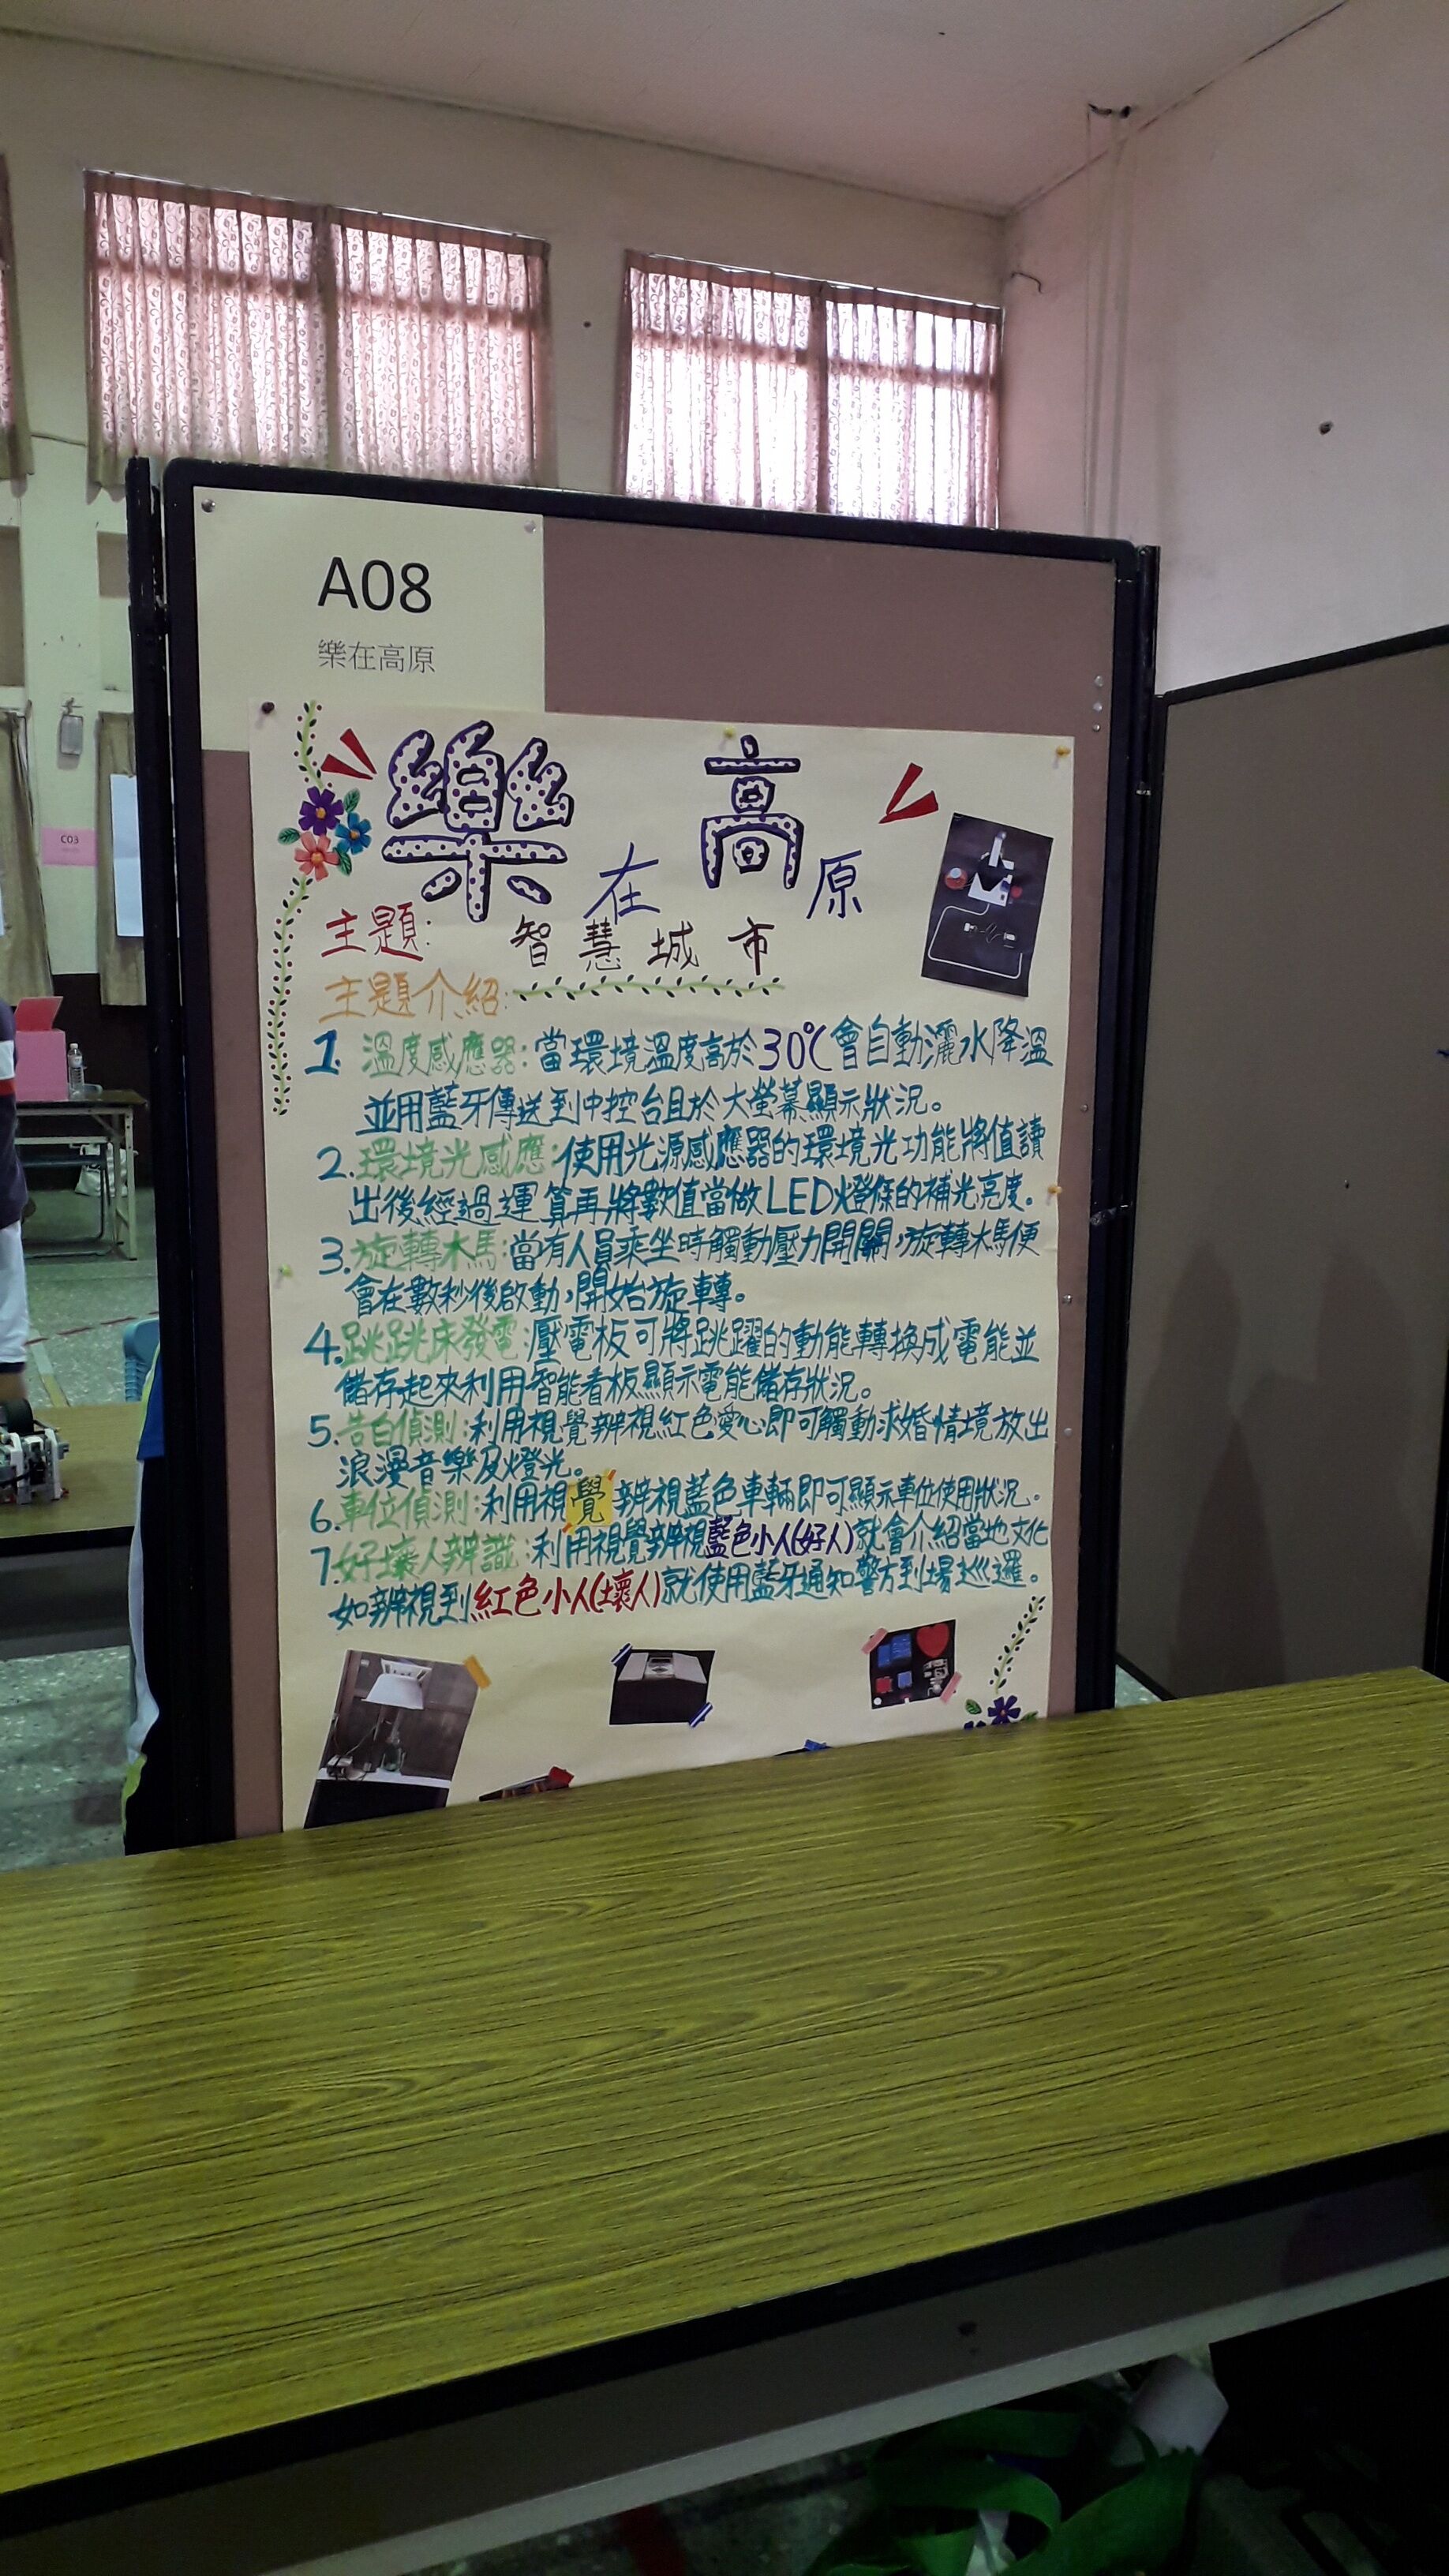 A08
樂在高原
樂在高原
主題: 智慧城市
主題介紹:
1. 溫度感應器:當環境溫度高於30℃會自動灑水降溫
並用藍牙傳送到中控台且於大螢幕顯示狀況。
2. 環境光感應:使用光源感應器的環境光功能將值讀
出後經過運算再將數值當做LED燈條的補光亮度。
3. 旋轉木馬:當有人員乘坐時觸動壓力開關,旋轉木馬便
會在數秒後啟動,開始旋轉。
4. 跳跳床發電:壓電板可將跳躍的動能轉換成電能並
儲存起來利用智能看板顯示電能儲存狀況。
5. 告白偵測:利用視覺辨視紅色愛心即可觸動求婚情境放出
浪漫音樂及燈光。
6. 車位偵測:利用視覺辨視藍色車輛即可顯示車位使用狀況。
7. 好壞人辨識:利用視覺辨視藍色小人(好人)就會介紹當地文化
如辨視到紅色小人(壞人)就使用藍牙通知警方到場巡邏。
C03